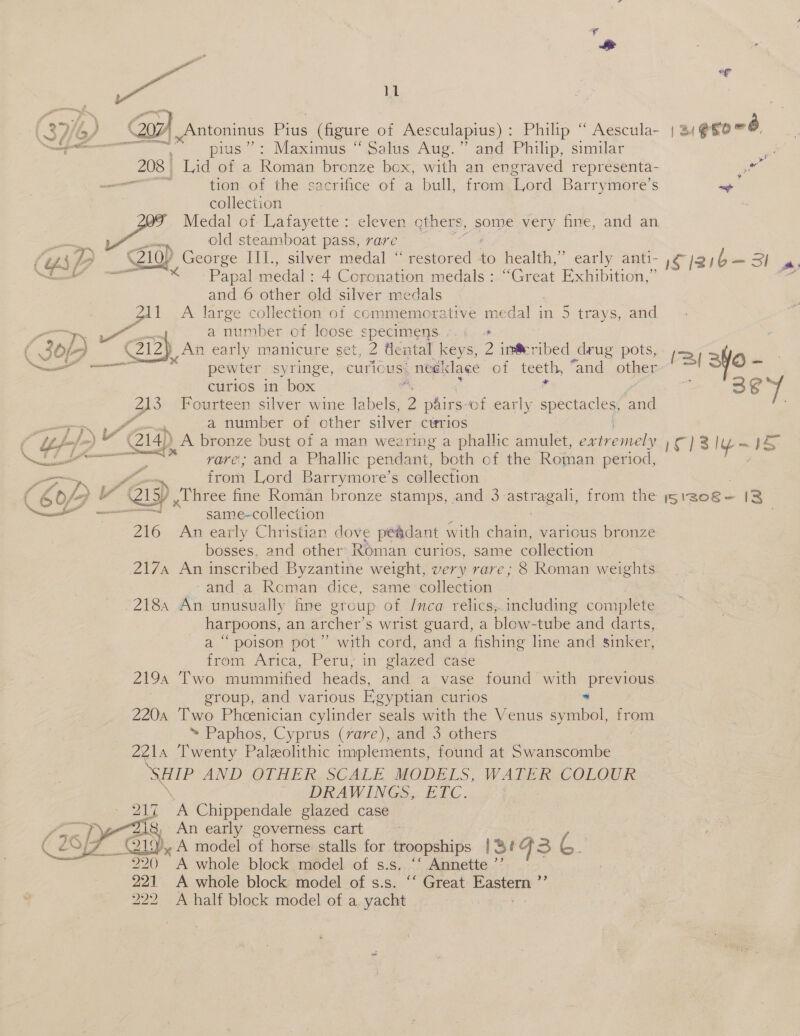 11
(37/6) 207 Antoninus Pius (figure of Aesculapius) : Philip “ Aescula-
pius ” : Maximus “ Salus Aug. ” and Philip, similar
208 Lid of a Roman bronze box, with an engraved representa-
tion of the sacrifice of a bull, from Lord Barrymore's
collection
209 Medal of Lafayette : eleven others, some very fine, and an
old steamboat pass, rare
(45/-) 210 George III., silver medal “ restored to health,” early anti-
Papal medal : 4 Coronation medals : “Great Exhibition,”
and 6 other old silver medals
211 A large collection of commemorative medal in 5 trays, and
a number of loose specimens
(30/-) 212 An early manicure set, 2 dental keys, 2 inscribed drug pots,
pewter syringe, curious necklace of teeth, and other
curios in box
213 Fourteen silver wine labels, 2 pairs of early spectacles, and
a number of other silver curios
214 A bronze bust of a man wearing a phallic amulet, extremely
rare; and a Phallic pendant, both of the Roman period,
from Lord Barrymore's collection
(60/-) 215 Three fine Roman bronze stamps, and 3 astragali, from the
same collection
216 An early Christian dove pendant with chain, various bronze
bosses, and other Roman curios, same collection
217A An inscribed Byzantine weight, very rare; 8 Roman weights
and a Roman dice, same collection
218A An unusually fine group of Inca relics, including complete
harpoons, an archer's wrist guard, a blow-tube and darts,
a “ poison pot ” with cord, and a fishing line and sinker,
from Arica, Peru, in glazed case
219A Two mummified heads, and a vase found with previous
group, and various Egyptian curios
220A Two Phœnician cylinder seals with the Venus symbol, from
Paphos, Cyprus (rare), and 3 others
221A Twenty Palæolithic implements, found at Swanscombe
SHIP AND OTHER SCALE MODELS, WATER COLOUR
DRAWINGS, ETC.
217 A Chippendale glazed case
218 An early governess cart
219 A model of horse stalls for troopships 13936
220 A whole block model of s.s. “ Annette ”
221 A whole block model of s.s. “ Great Eastern ”
222 A half block model of a yacht